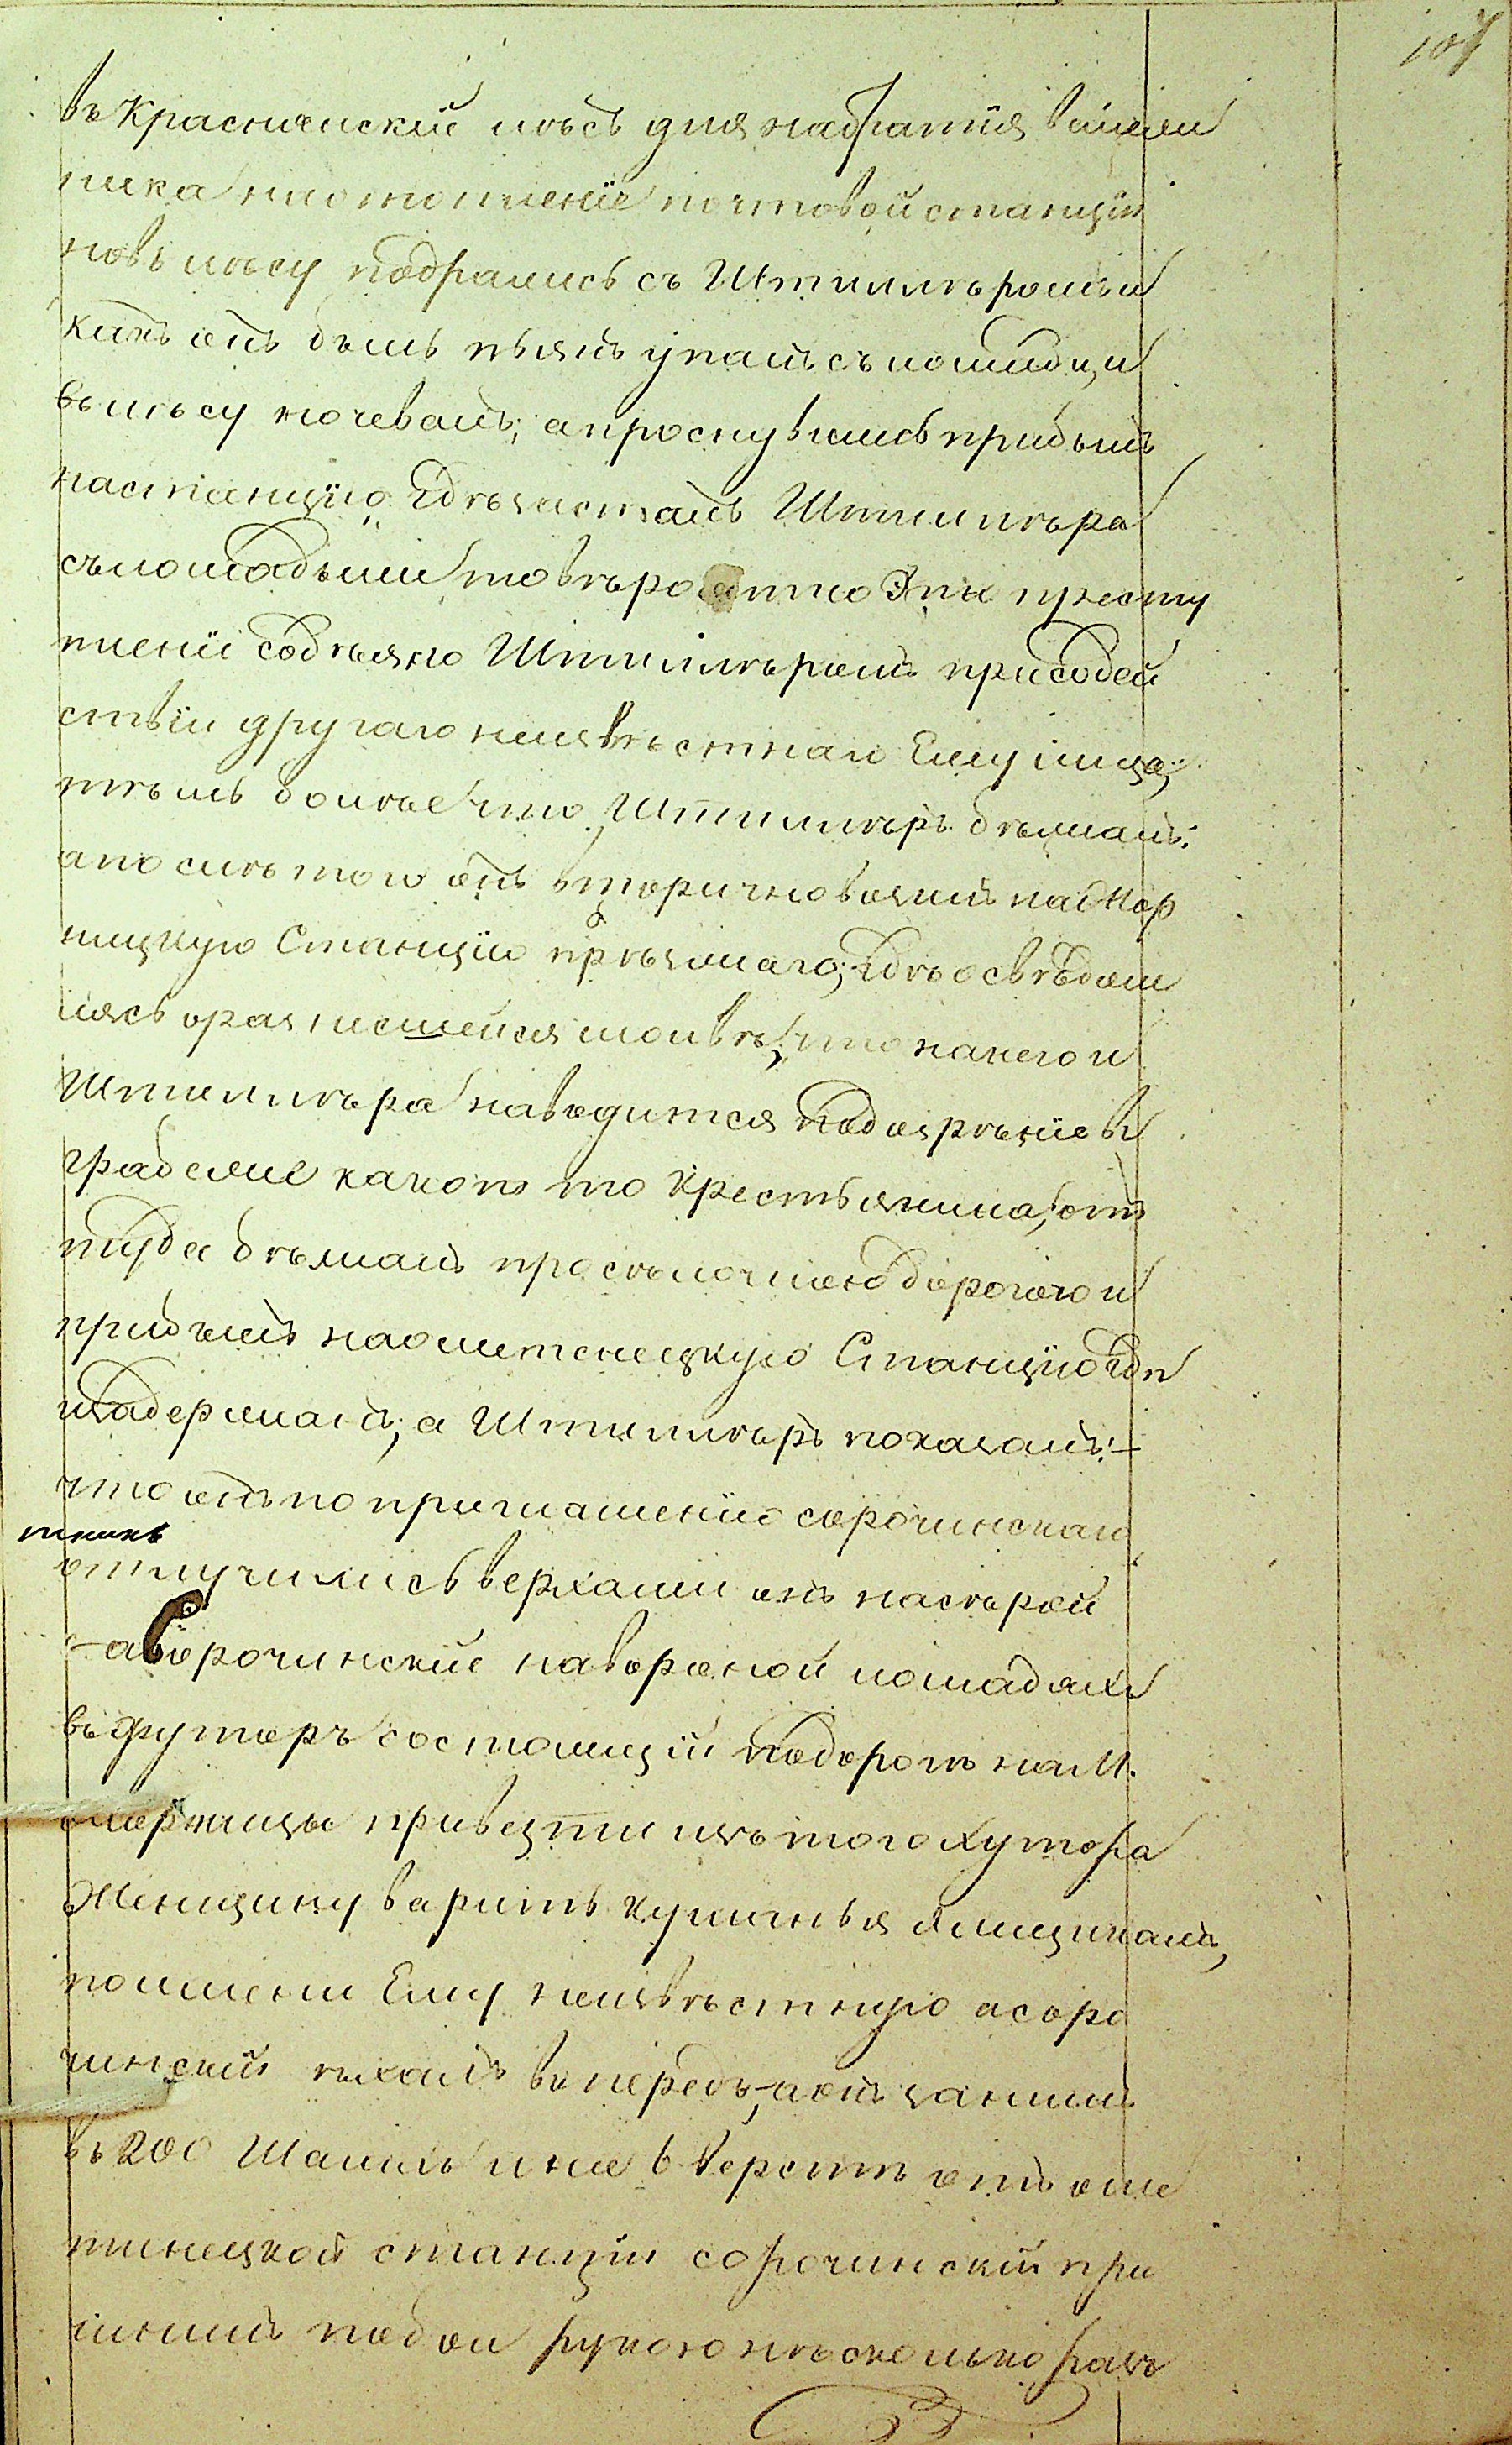 107
въ Краснянскій лѣсъ для набратія валеж
ника на отопленіе почтовой станціи
но въ лѣсу подрались съ Штиллѣромъ и
какъ онъ былъ пьянъ упалъ съ лошади, и
въ лѣсу ночевалъ; а проснувшись прибылъ
на станцію, гдѣ засталъ Штиллѣра
съ лошадьми то вѣроятно эти престу
пленіи содѣяно Штиллѣромъ при содѣй
ствіи другаго неизвѣстнаго Ему лица,
тѣмъ болѣе что, Штиллѣръ бѣжалъ:
а послѣ того онъ вторично взятъ на Мер
лицкую Станцію проѣзжаго, гдѣ освѣдом
лясь о разнисшейся молвѣ, что на него и
Штиллѣра наводится подозрѣніе въ
грабежѣ какого то крестьянина, от
туда бѣжалъ проселочною дорогою и
прибылъ на ометенецкую Станцію гдѣ
и задержанъ, а Штиллѣръ показалъ:–
что онъ по приглашенію сорочинскаго
отлучились верхами онъ на сѣрой
а сорочинскіе на вороной лошадяхъ
въ футоръ состоящій подорогѣ на М.
привезти изъ того Хутора
Женщину варить кушанья ямщикамъ,
по имени Ему неизвѣстную а соро
чинскій ѣхалъ впередъ, а онъ за нимъ
въ 200 Шагахъ и не въ верстѣ отъ оме
тинецкой станціи сорочинскій при
рукою нѣсколько разъ